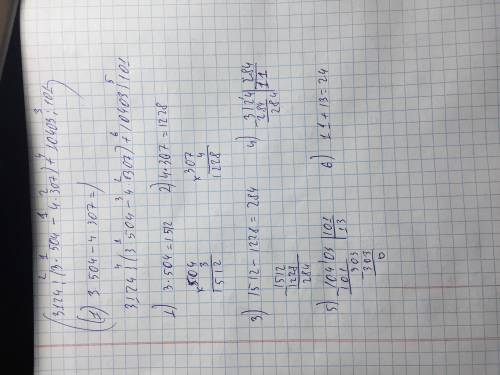 2 1 1 2 4 3
(3124 | (3·504 - 4·307) + 10403 : 101)
(1) 3·504-4·307=)
4 1 3 2 6 5
3124 | (3·504 - 4·307) + 10403 | 101
1) 3·504=1512
×504
3
1512
2) 4·307=1228
×307
4
1228
3) 1512-1228=284
-1512
1228
284
4) -3124 | 284
284 | 11
284
5) -10403 | 101
101 | 13
303
303
0
6) 11+13=24